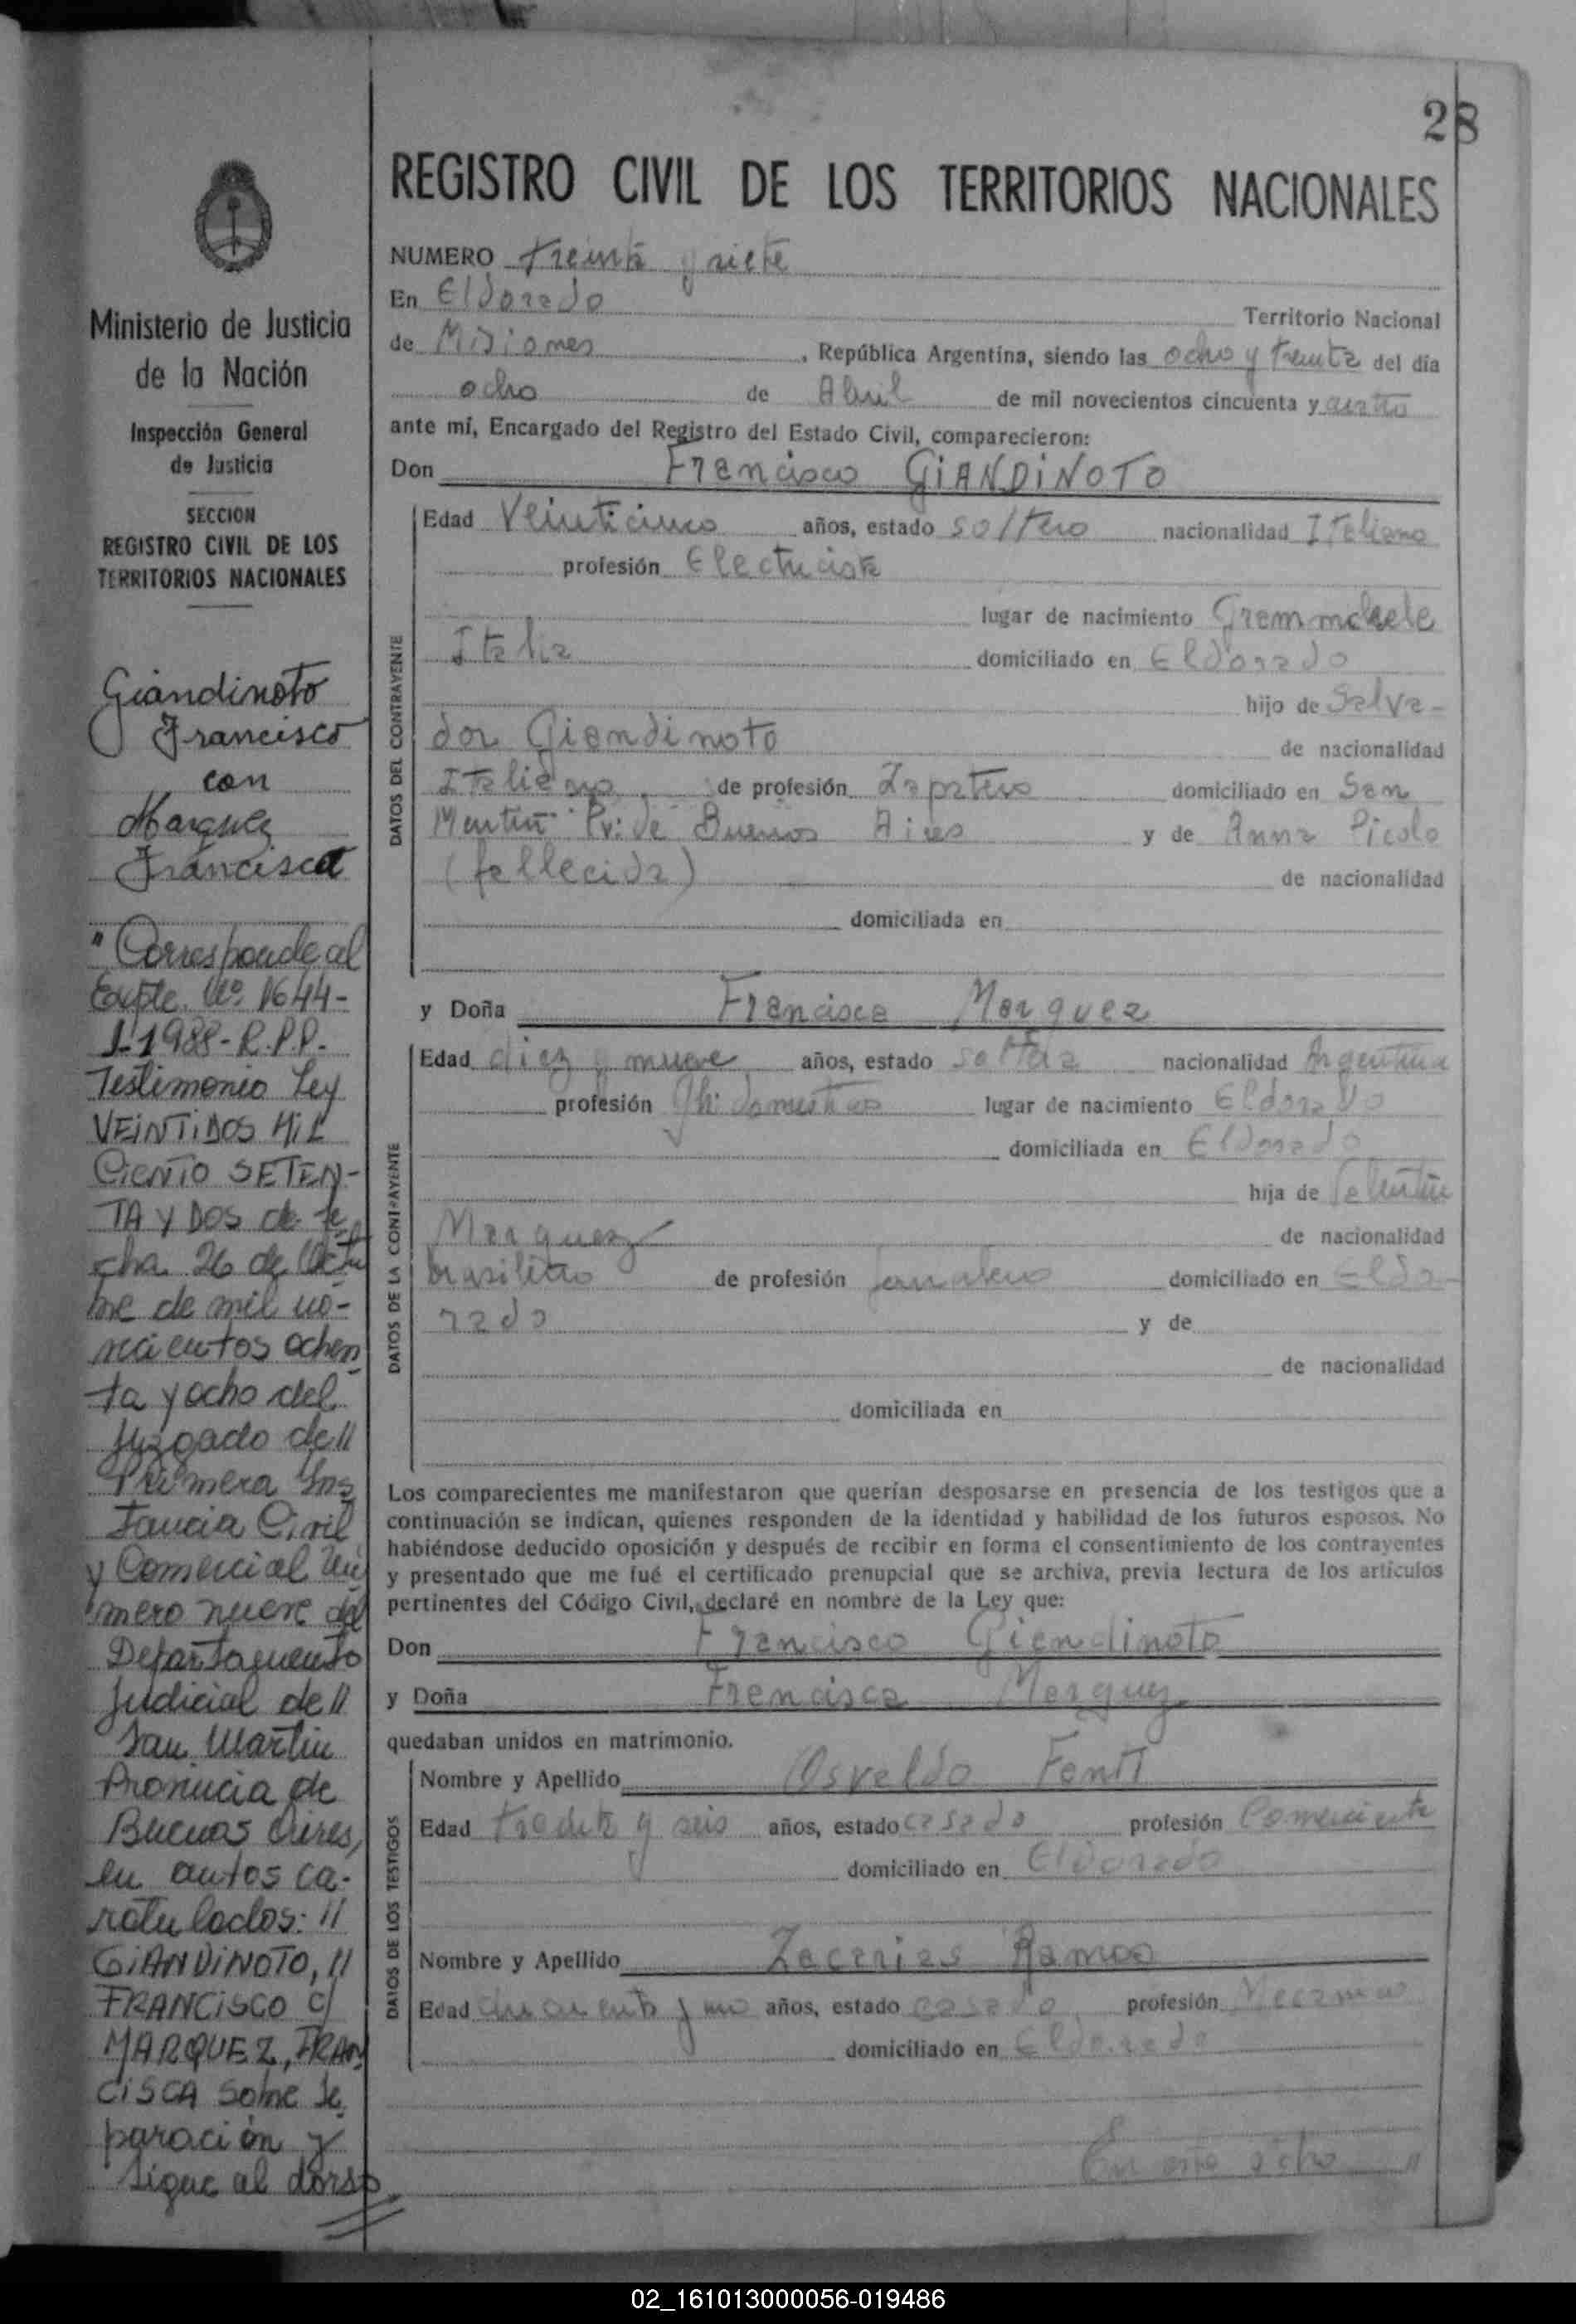 28
Ministerio de Justicia
de la Nación
Inspección General
de Justicia
SECCION
REGISTRO CIVIL DE LOS
TERRITORIOS NACIONALES
Giandinoto
Francisco
con
Marquez
Francisca
"Corresponde al
Expte. Nº 1644-
J-1988-R.P.P.
Testimonio Ley
VEINTIDOS MIL
CIENTO SETEN-
TA Y DOS de fe
cha 26 de Octu
bre de mil no-
vecientos ochen
ta y ocho del
Juzgado de//
Primera Ins
tancia Civil
y Comercial Nú
mero nueve del
Departamento
Judicial de//
San Martin
Provincia de
Buenos Aires,
en autos ca-
ratulados: //
GIANDINOTO, //
FRANCISCO C/
MARQUEZ, FRAN
CISCA sobre se
paración y
Sigue al dorso
REGISTRO CIVIL DE LOS TERRITORIOS NACIONALES
NUMERO treinta y siete
En Eldorado Territorio Nacional
de Misiones, República Argentina, siendo las ocho y treinta del día
ocho de Abril de mil novecientos cincuenta y cuatro
ante mí, Encargado del Registro del Estado Civil, comparecieron:
Don Francisco GIANDINOTO
DATOS DEL CONTRAYENTE
Edad Veinticinco años, estado soltero nacionalidad Italiano
profesión Electricista
lugar de nacimiento Grammchele
Italia domiciliado en Eldorado
hijo de Salva-
dor Giandinoto de nacionalidad
Italiano, de profesión Zapatero domiciliado en San
Martin Pv. de Buenos Aires y de Anna Picolo
(fallecida) de nacionalidad
domiciliada en
y Doña Francisca Marquez
DATOS DE LA CONTRAYENTE
Edad diez y nueve años, estado soltera nacionalidad Argentina
profesión domesticos lugar de nacimiento Eldorado
domiciliada en Eldorado
hija de
Marquez de nacionalidad
brasilero de profesión Jornalero domiciliado en Eldo-
rado y de
de nacionalidad
domiciliada en
Los comparecientes me manifestaron que querían desposarse en presencia de los testigos que a
continuación se indican, quienes responden de la identidad y habilidad de los futuros esposos. No
habiéndose deducido oposición y después de recibir en forma el consentimiento de los contrayentes
y presentado que me fué el certificado prenupcial que se archiva, previa lectura de los artículos
pertinentes del Código Civil, declaré en nombre de la Ley que:
Don Francisco Giandinoto
y Doña Francisca Marquez
quedaban unidos en matrimonio.
DATOS DE LOS TESTIGOS
Nombre y Apellido Osvaldo
Edad treinta y seis años, estado casado profesión Comerciante
domiciliado en Eldorado
Nombre y Apellido Zacarias Ramos
Edad cuarenta y uno años, estado casado profesión Mecanico
domiciliado en Eldorado
En este acto //
02_161013000056-019486